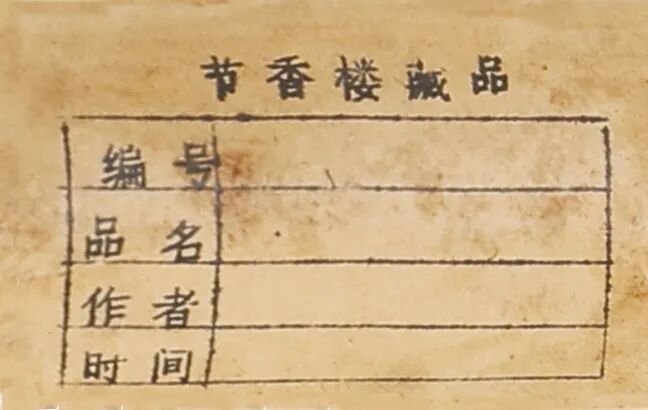 节香楼藏品
编号
品名
作者
时间